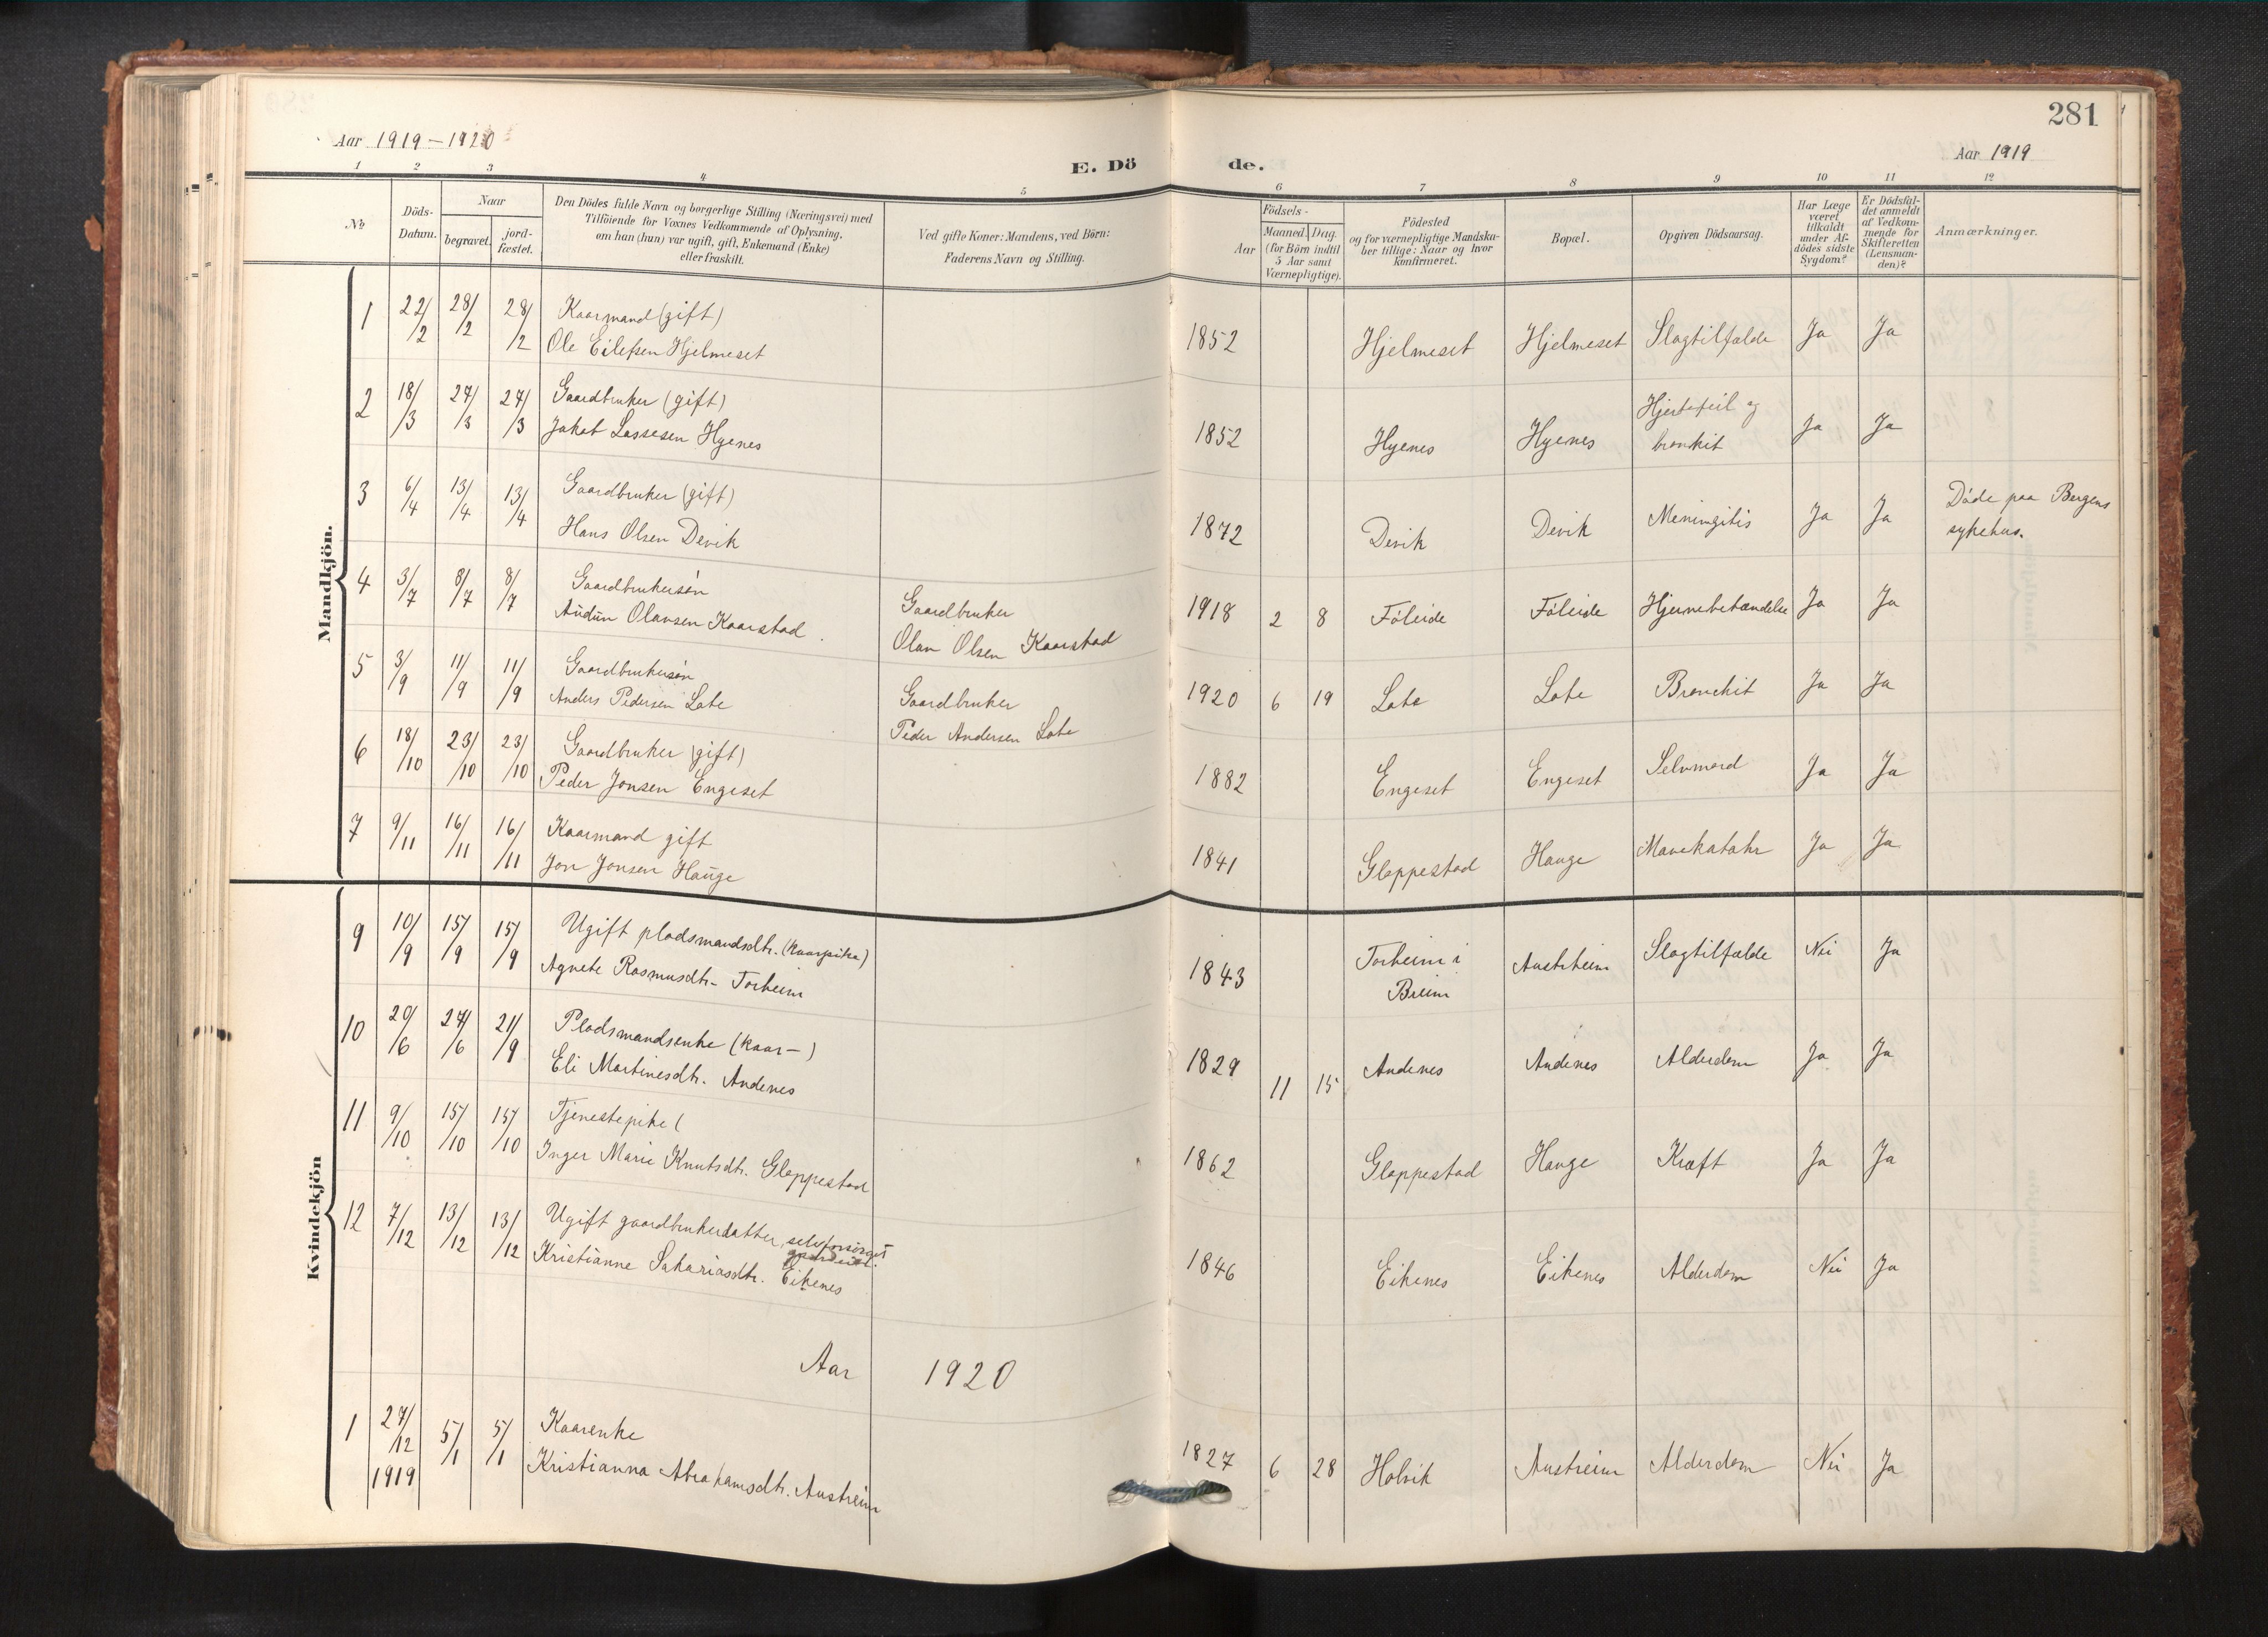 281
Aar 1919 - 1920
E. Dö de.
Aar 1919
1 2 3 4 5 6 7 8 9 10 11 12
No
Döds-Datum.
Naar
begravet.
jord-fæstet.
Den Dödes fulde Navn og borgerlige Stilling (Næringsvei) med
Tilföiende for Voxnes Vedkommende af Oplysning,
om han (hun) var ugift, gift, Enkemand (Enke)
eller fraskilt.
Ved gifte Koner: Mandens, ved Börn:
Faderens Navn og Stilling.
Födsels-
Aar
Maaned.
Dag.
(for Börn indtil
5 Aar samt
Værnepligtige).
Födested
og for værnepligtige Mandska-
ber tillige: Naar og hvor
konfirmeret.
Bopæl.
Opgiven Dödsaarsag.
Har Læge
været
tilkaldt
under Af-
dödes sidste
Sygdom?
Er Dödsfal-
det anmeldt
af Vedkom-
mende for
Skifteretten
(Lensman-
den)?
Anmærkninger.
Mandkjön.
1 22/2 28/2 28/2 Kaarmand (gift)
Ole Eilefsen Hjelmeset 1852 Hjelmeset Hjelmeset Slagtilfælde Ja Ja
2 18/3 27/3 27/3 Gaardbruker (gift)
Jakob Lassesen Hyenes 1852 Hyenes Hyenes Hjertefeil og
bronkit Ja Ja
3 6/4 13/4 13/4 Gaardbruker (gift)
Hans Olsen Devik 1872 Devik Devik Meningitis Ja Ja Döde paa Bergens
sykehus.
4 3/7 8/7 8/7 Gaardbrukersön
Audun Olavsen Kaarstad. Gaardbruker
Olav Olsen Kaarstad 1918 2 8 Föleide Föleide Hjernebetændelse Ja Ja
5 3/9 11/9 11/9 Gaardbrukersön
Anders Pedersen Lote Gaardbruker
Peder Andersen Lote 1920 6 19 Lote Lote Bronchit Ja Ja
6 18/10 23/10 23/10 Gaardbruker (gift)
Peder Jonsen Engeset 1882 Engeset Engeset Selvmord Ja Ja
7 9/11 16/11 16/11 Kaarmand gift
Jon Jonsen Hauge 1841 Gloppestad Hauge Mavekatahr Ja Ja
Kvindekjön
9 10/9 15/9 15/9 Ugift pladsmandsdtr. (kaarpike)
Agnete Rasmusdtr. Torheim 1843 Torheim i
Breim Austrheim Slagtilfælde Nei Ja
10 20/6 27/6 21/9 Pladsmandsenke (kaar-)
Eli Martinesdtr. Andenes 1829 11 15 Andenes Andenes Alderdom Ja Ja
11 9/10 15/10 15/10 Tjenestepike (
Inger Marie Knutsdtr. Gloppestad 1862 Gloppestad Hauge Kræft Ja Ja
12 7/12 13/12 13/12 Ugift gaardbrukerdatter, selvforsörget
Kristianne Sakariasdtr. Eikenes 1846 Eikenes Eikenes Alderdom Nei Ja
Aar 1920
1 27/12 1919 5/1 5/1 Kaarenke
Kristianna Abrahamsdtr. Austreim 1827 6 28 Holvik Austreim Alderdom Nei Ja